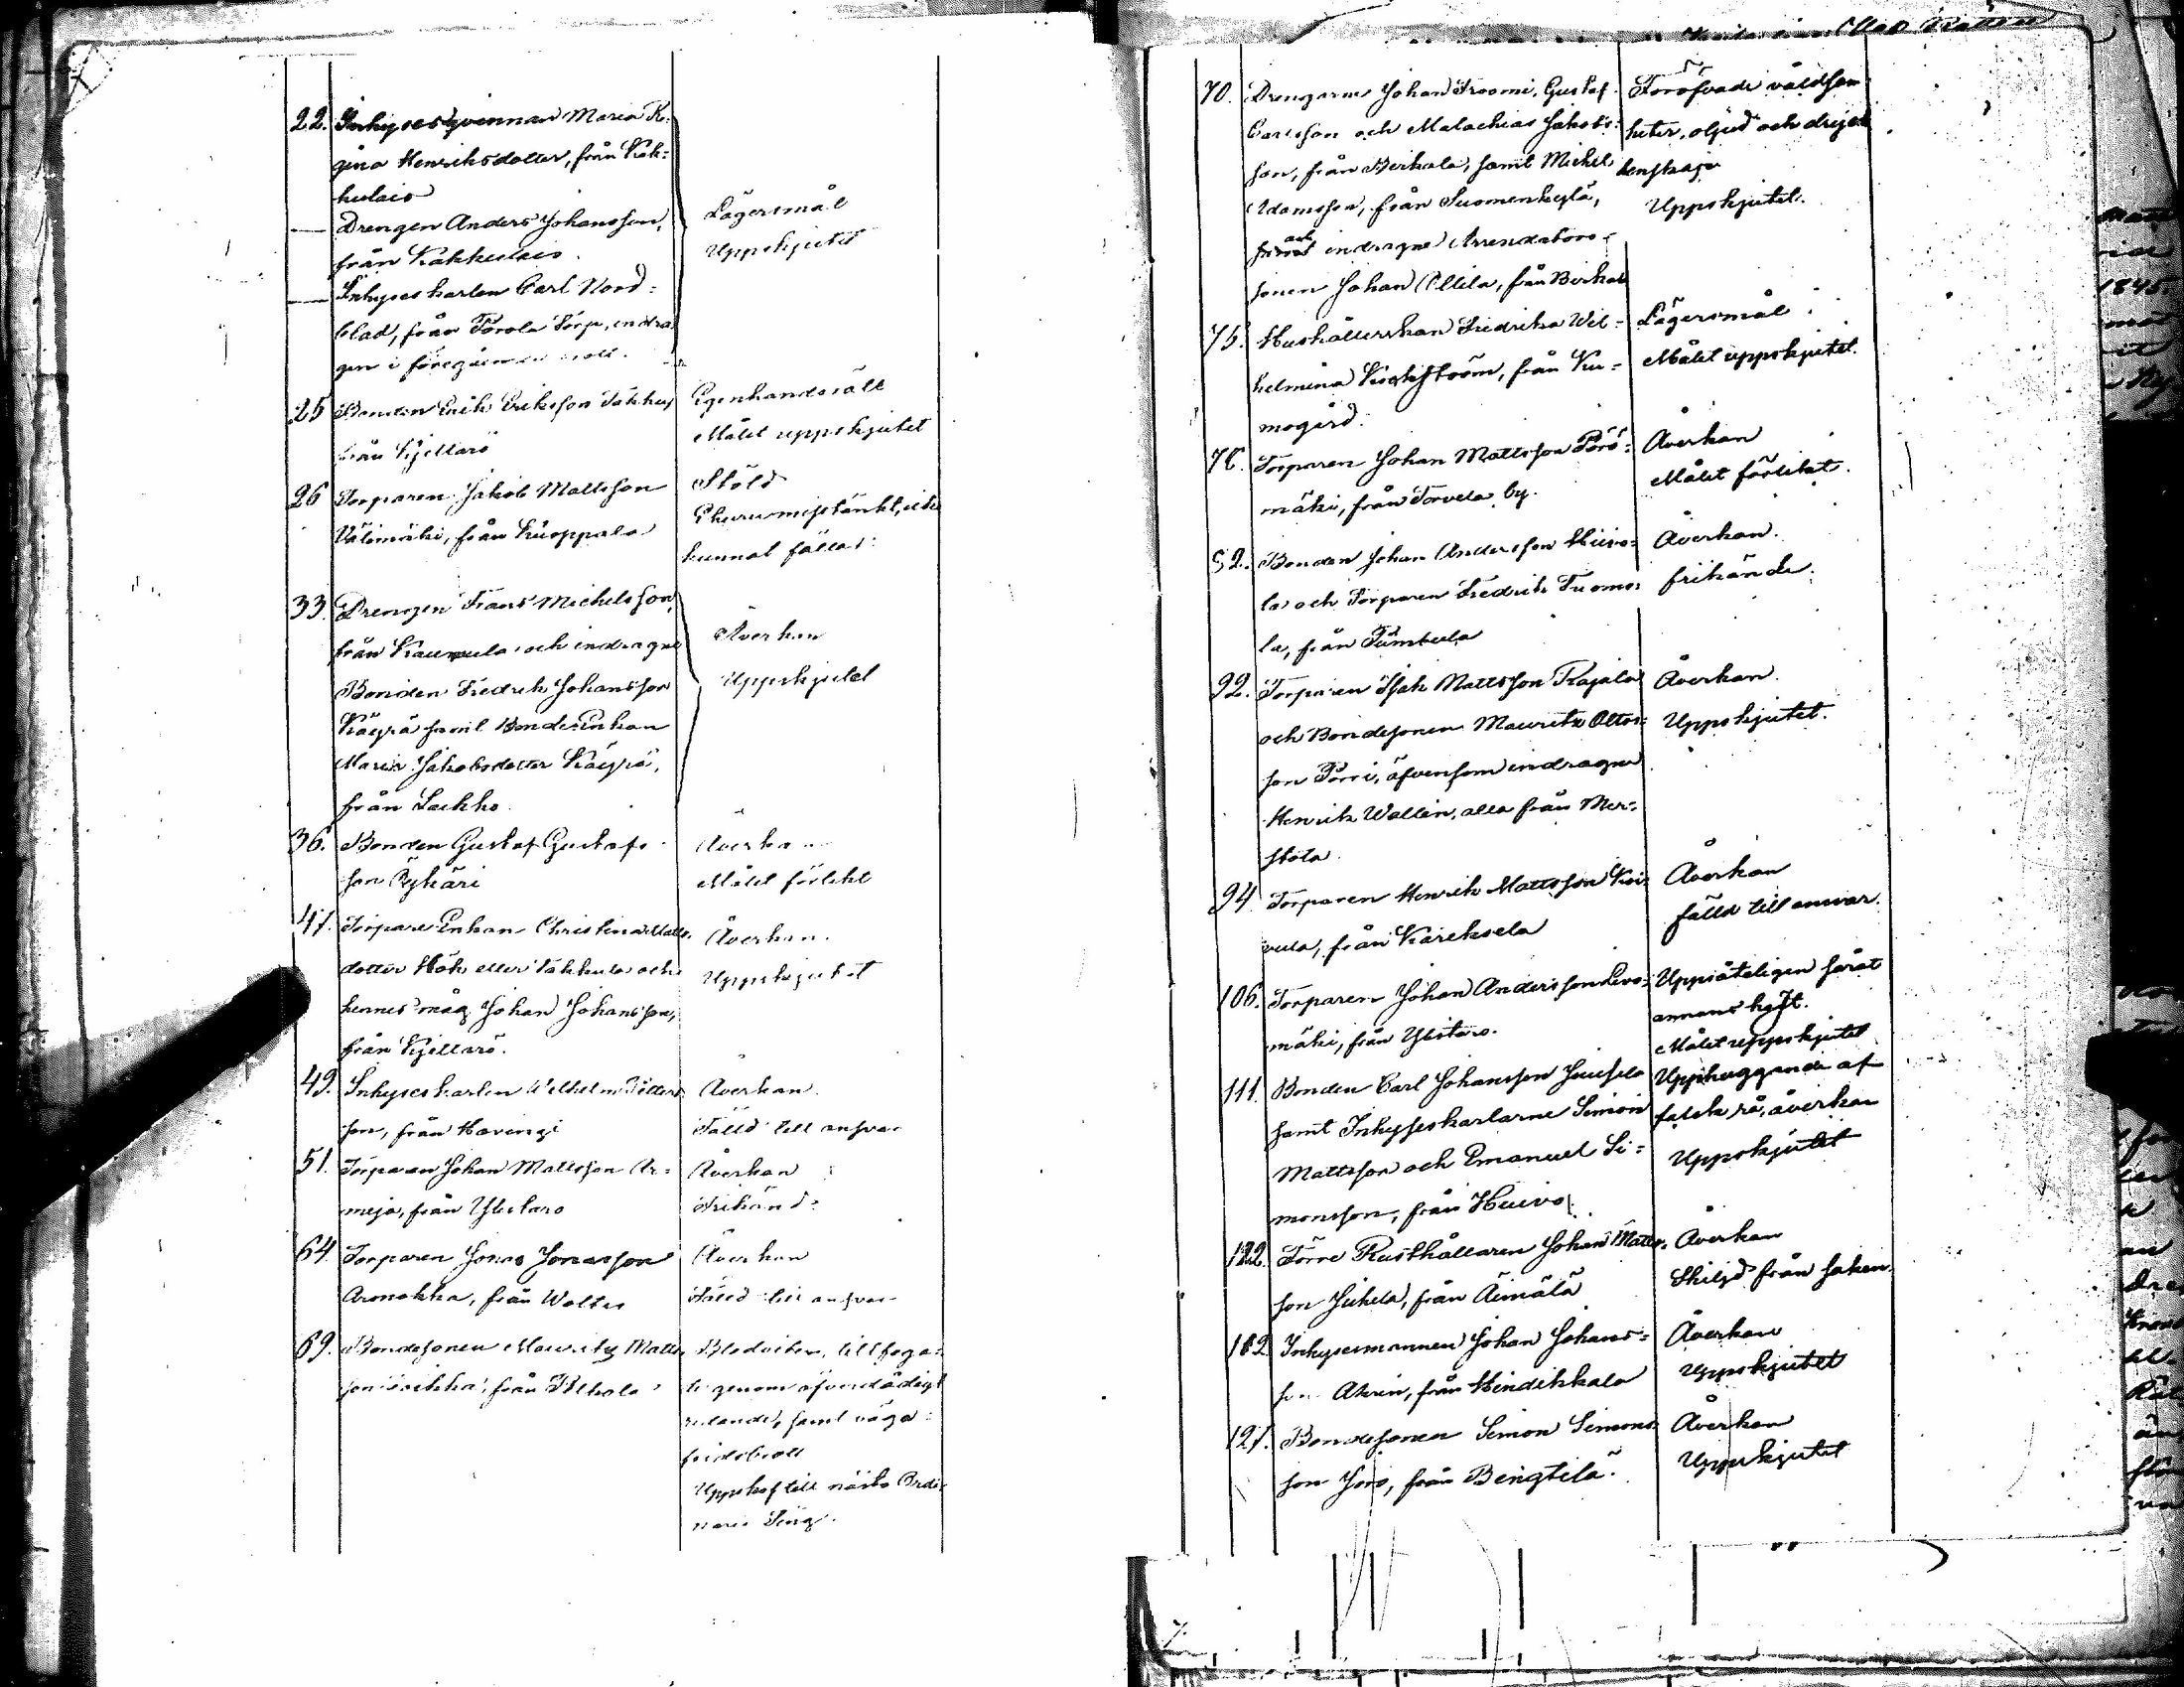 22. Inhyses qvinnan Maria Re-
gina Henriksdotter, från Kak=
kulais
— Drengen Anders Johansson,
från Kakkulais.
Lägersmål
Uppskjutet
— Inhyses karlen Carl Nord=
blad, från Torp, indra
gen i föregående mål.
25 Bonden Erik Eriksson Takku,
från Kjettarö
Egenhandsrätt
Målet uppskjutet
26 Torparen Jakob Mattsson
Välimäki, från Kuoppala
Stöld
misstänkt, icke
kunnat fällas.
33. Drengen Frans Michelsson,
från och indragne
Bonden Fredrik Johansson
Käyrä samt Bonde Enkan
Maria Jakobsdotter Käyrä,
från Laukko.
Åverkan
Uppskjutet
36. Bonden Gustaf Gustafs-
son Äyhäri
Åverkan
Målet förlikt
47. Torpare Enkan Christina Matts-
dotter Hök eller Takkula och
hennes måg Johan Johansson,
från Kjettarö.
Åverkan.
Uppskjutet
49. Inhyseskarlen Wilhelm
son, från Havingi
Åverkan
Fälld till ansvar
51. Torparen Johan Mattsson Ar=
meja, från Ylistaro
Åverkan
Frikänd.
64. Torparen Jonas Jonasson
Aronokka, från Waltis
Åverkan
Fälld till ansvar
69. Bondesonen Mauritz Matts-
son från
Blodviten, tillfoga-
de genom öfverdådigt
ridande, samt väga=
fridsbrott
Uppskof till nästa Ordi-
narie Ting.
70. Drengarne Johan Troomi, Gustaf
Carlsson och Malachias Jakobs=
son, från Birkala, samt Michel
Adamsson, från Suomenkylä,
indragne Arrendators-
sonen Johan Ollila, från Birkala
Föröfvade våldsam-
heter, oljud och dryck-
enskap
Uppskjutet.
75. Hushållerskan Fredrika Wil=
helmina från Ku=
mogård.
Lägersmål
Målet uppskjutet.
Torparen Johan Mattsson Pörö=
mäki, från Torvela by.
Åverkan
Målet förlikt.
Bonden Johan Andersson Huivo=
la och Torparen Fredrik Tuomo=
la, från
Åverkan.
frikände.
92. Torparen Isak Mattsson Rajala
och Bondesonen Mauritz Ottos=
son Pörri, äfvensom indragne
Henrik Wallin, alla från Mer=
stola.
Åverkan.
Uppskjutet.
94. Torparen Henrik Mattsson Koi-
vula, från Kareksela
Åverkan
fälld till ansvar.
106. Torparen Johan Andersson Levo=
mäki, från Ylistaro.
Uppsåteligen sårat
annans häst.
Målet uppskjutet
111. Bonden Carl Johansson Juusela
samt Inhyseskarlarne Simon
Mattsson och Emanuel Si=
monsson, från Huivo
Upphuggande af
falsk rå, åverkan
Uppskjutet
122. Förre Rusthållaren Johan Matts-
son från Äimälä
Åverkan
Skiljd från saken.
Inhysesmannen Johan Johans=
son Akrin, från Hindikkala
Åverkan
Uppskjutet
127. Bondesonen Simon Simons-
son från Bengtilä.
Åverkan
Uppskjutet
1845